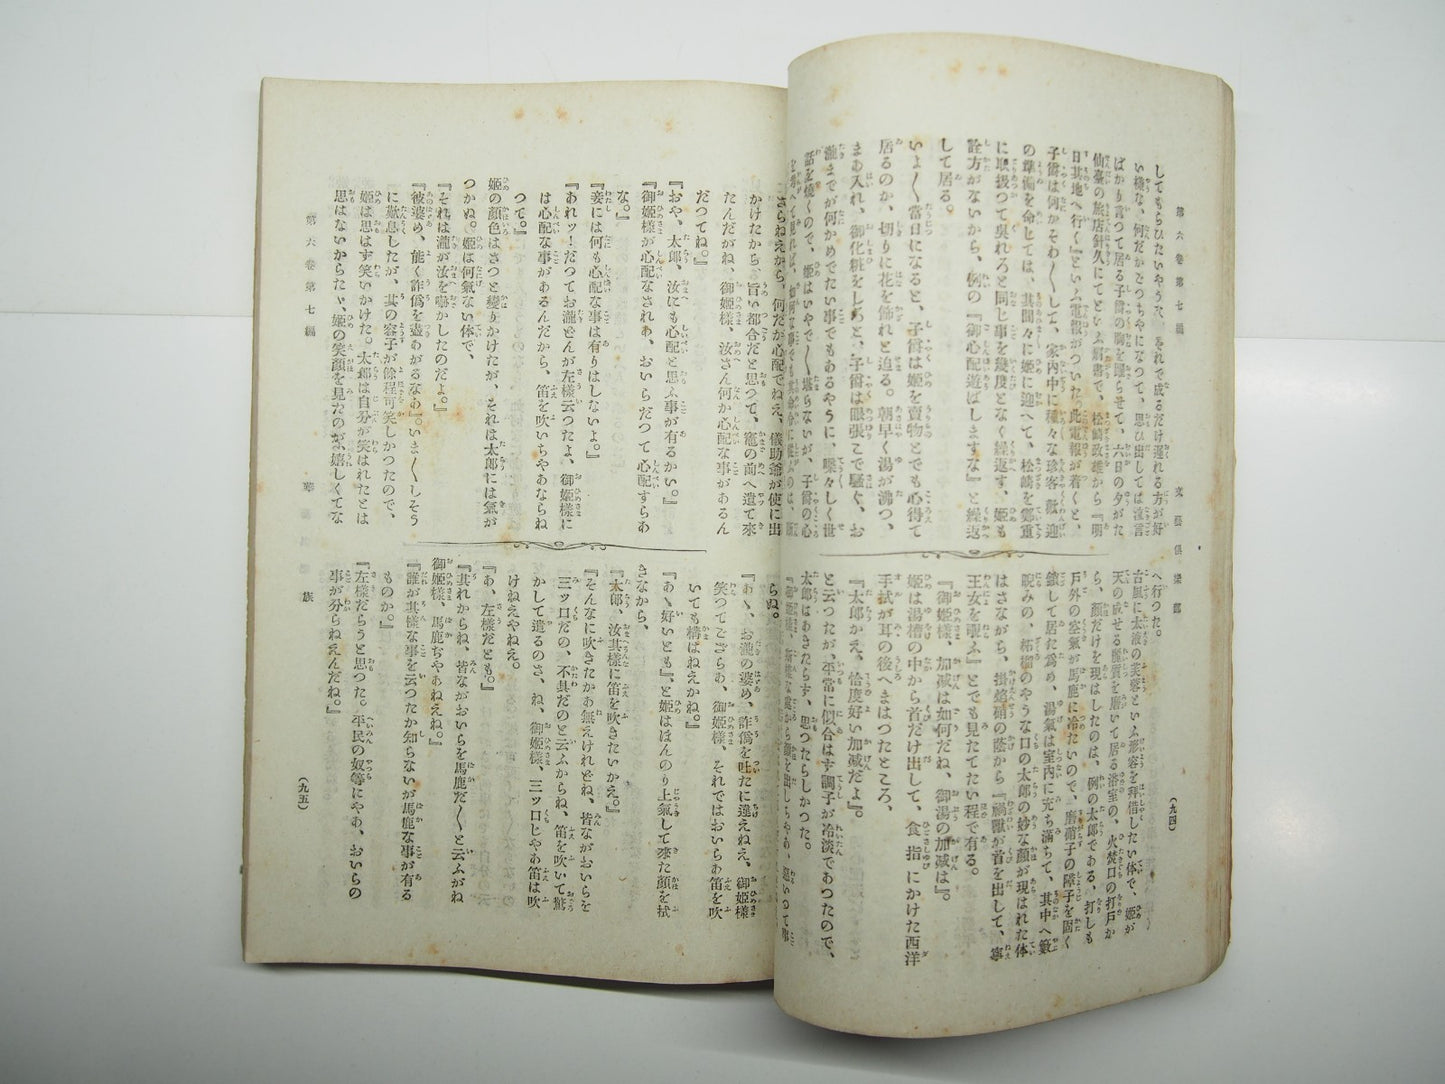 第六卷第七編
文藝倶樂部
(九四)
してもらひたいやうな、それで成るだけ遲れる方が好
い樣な、何だかごつちやになつて、思ひ出しては獨言
ばかり言つて居る子爵の胸を躍らせて、六日の夕がた
仙臺の旅店針久にてといふ肩書で、松崎政雄から『明
日其地へ行く』といふ電報がついた。此電報が着くと、
子爵は何かそわ〳〵して、家内中に種々な珍客歡迎
の準備を命じては、其間々に姬に迎へて、松崎を鄭重
に取扱つて吳れろと同じ事を幾度となく繰返す、姬も
詮方がないから、例の『御心配遊ばしますな』と繰返
して居る。
いよ〳〵當日になると、子爵は姬を賣物とでも心得て
居るのか、切りに花を飾れと迫る。朝早く湯が沸つ、
まあ入れ、御化粧をしろと、子爵は眼張こで騷ぐ、お
瀧までが何かめでたい事でもあるやうに、喋々しく世
話を燒くので、姬はいやで〳〵堪らないが、子爵の心
へ行つた。
古風に太液の芙蓉といふ形容を拜借したい体で、姬が
天の成せる麗質を磨いて居る浴室の、火焚口の打戸か
ら、顏だけを現はしたのは、例の太郎である、打しも
戶外の空氣が馬鹿に冷たいので、磨硝子の障子を固く
鎖して居た爲め、湯氣は室內に充ち滿ちて、其中へ籔
睨みの、柘榴のやうな口の太郎の妙な顏が現はれた体
はさながら、掛焰硝の蔭から『禍獸が首を出して、寧
王女を覗ふ』とでも見たてたい程で有る。
『御姬樣、加減は如何だね、御湯の加減は』。
姬は湯槽の中から首だけ出して、食指にかけた西洋
手拭が耳の後へまはつたところ、
『太郎かえ、恰度好い加減だよ』。
と云つたが、平常に似合はす調子が冷淡であつたので、
太郎はあきたらず、思つたらしかつた。
さらねえから、何だか心配でねえ、儀助爺が使に出
かけたから、旨い都合だと思つて、竈の前へ遣て來
たんだがね、御姬樣、汝さん何か心配な事があるん
だつてね。』
『おや、太郎、汝にも心配と思ふ事が有るかい。』
『御姬樣が心配なされあ、おいらだつて心配すらあ
な。』
『妾には何も心配な事は有りはしないよ。』
『あれッ！だつてお瀧さんが左樣云つたよ、御姬樣に
は心配な事があるんだから、笛を吹いちやあならね
つて。』
姬の顏色はさつと變りかけたが、それは太郎には氣が
つかぬ。姬は何氣ない体で、
『それは瀧が汝を嚇かしたのだよ。』
『彼婆め、能く詐僞を盡あがるなあ』。いま〳〵しそう
に歎息したが、其の容子が餘程可笑しかつたので、
姬は思はず笑いかけた。太郎は自分が笑はれたとは
思はないからたゞ、姬の笑顏を見たのが、嬉しくてな
らぬ。
『あゝ、お瀧の婆め、詐僞を吐たに違えねえ、御姬樣
笑つてござらあ、御姬樣、それではおいらあ笛を吹
いても構はねえかね。』
『あゝ好いとも』、と姬はほんのり上氣して來た顏を拭
きながら、
『太郎、汝其樣に笛を吹きたいかえ。』
『そんなに吹きたかあ無えけれどね、皆ながおいらを
三ッ口だの、不具だのと云ふからね、笛を吹いて驚
かして遣るのさ、ね、御姬樣、三ッ口じやあ笛は吹
けねえやねえ。
『あ、左樣だとも。』
『其れからね、皆ながおいらを馬鹿だ〳〵と云ふがね
御姬樣、馬鹿ぢやあねえね。』
『誰が其樣な事を云つたか知らないが馬鹿な事が有る
ものか。』
『左樣だらうと思つた。平民の奴等にやあ、おいらの
事が分らねえんだね。』
第六卷第七編
(九五)